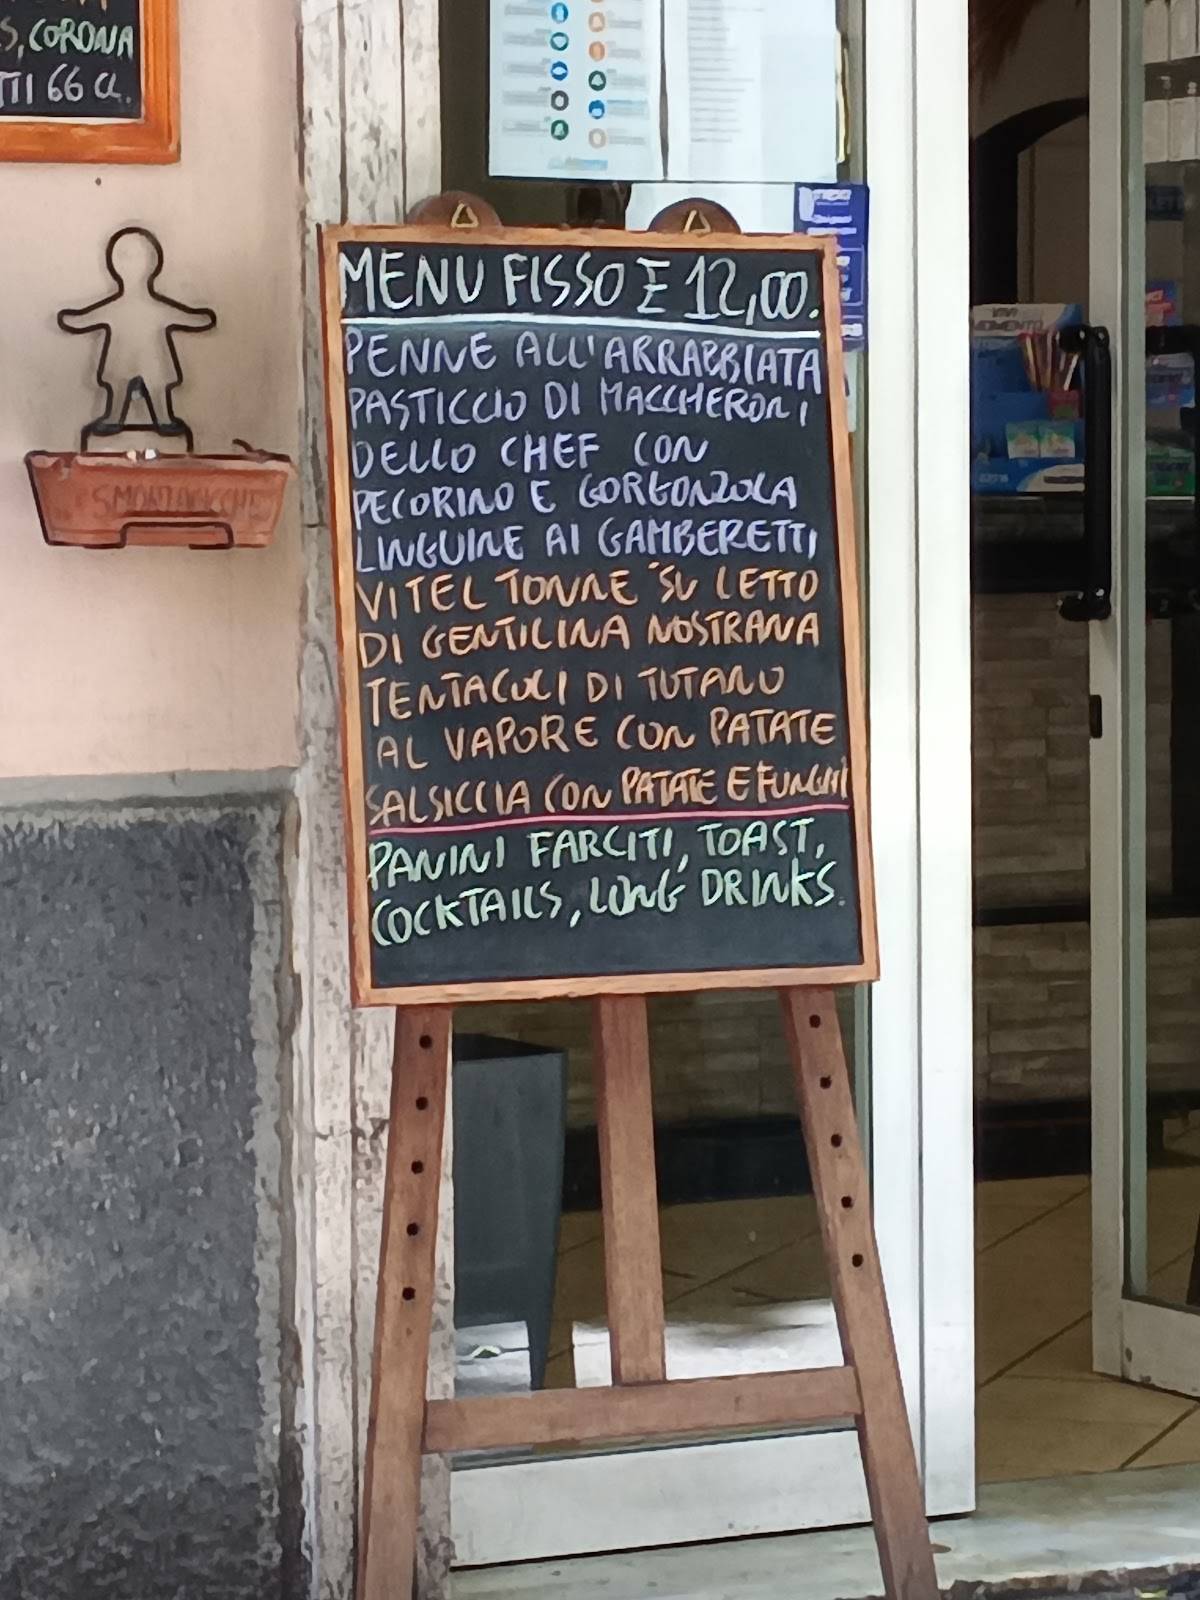 S, CORONA
TTI 66 CL.
MENU FISSO E 12,00.
PENNE ALL'ARRABBIATA
PASTICCIO DI MACCHERONI
DELLO CHEF CON
PECORINO E GORGONZOLA
LINGUINE AI GAMBERETTI
VITEL TONNE SU LETTO
DI GENTILINA NOSTRANA
TENTACOLI DI TOTANO
AL VAPORE CON PATATE
SALSICCIA CON PATATE E FUNGHI
PANINI FARCITI, TOAST,
COCKTAILS, LONG DRINKS.